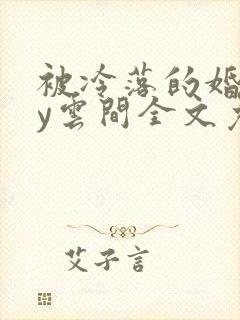 被冷落的婚
y雲間全文
艾子言